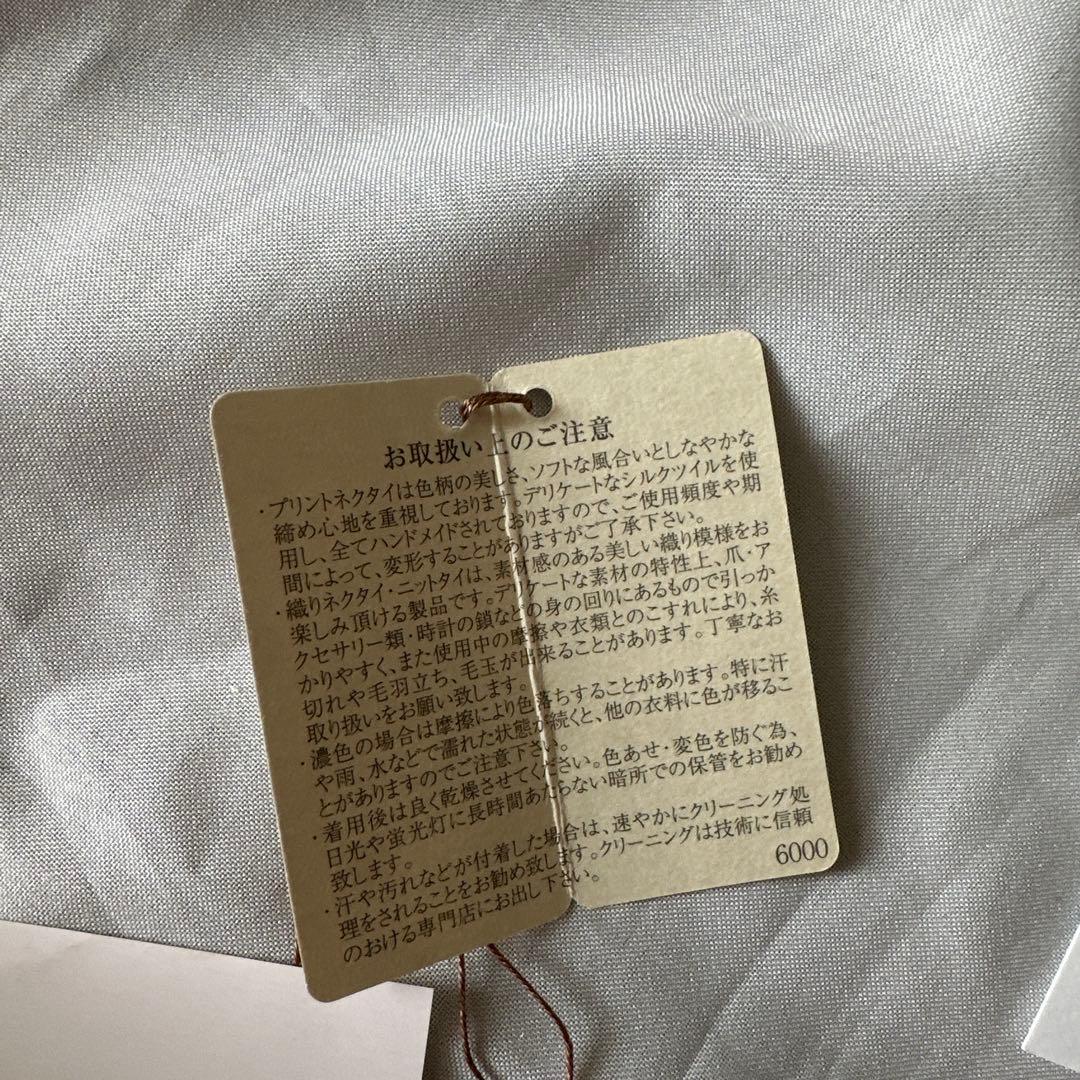 お取扱い上のご注意
・プリントネクタイは色柄の美しさ、ソフトな風合いとしなやかな
締め心地を重視しております。デリケートなシルクツイルを使
用し、全てハンドメイドされておりますので、ご使用頻度や期
間によって、変形することがありますがご了承下さい。
・織りネクタイ・ニットタイは、素材感のある美しい織り模様をお
楽しみ頂ける製品です。デリケートな素材の特性上、爪・ア
クセサリー類・時計の鎖などの身の回りにあるもので引っか
かりやすく、また使用中の摩擦や衣類とのこすれにより、糸
切れや毛羽立ち、毛玉が出来ることがあります。丁寧なお
取り扱いをお願い致します。
・濃色の場合は摩擦により色落ちすることがあります。特に汗
や雨、水などで濡れた状態が続くと、他の衣料に色が移るこ
とがありますのでご注意下さい。
・着用後は良く乾燥させてください。色あせ・変色を防ぐ為、
日光や蛍光灯に長時間あたらない暗所での保管をお勧め
致します。
・汗や汚れなどが付着した場合は、速やかにクリーニング処
理をされることをお勧め致します。クリーニングは技術に信頼
のおける専門店にお出し下さい。
6000